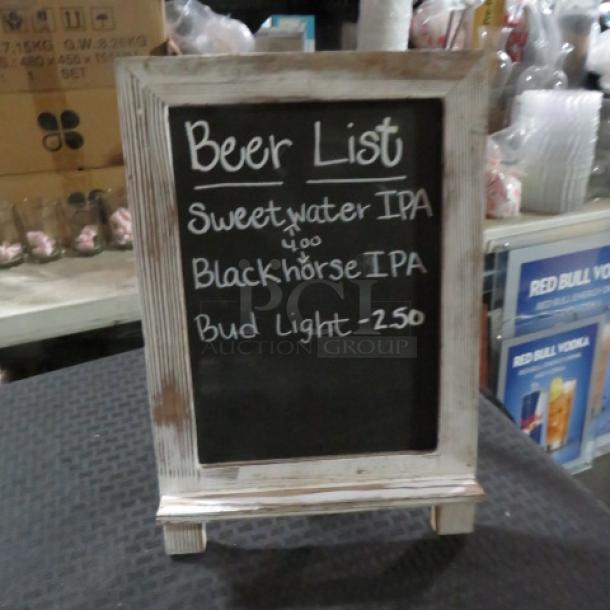 7.15KG G.W.:8.26KG
SET
Beer List
Sweetwater IPA
4.00
Blackhorse IPA
Bud Light - 2.50
PCI
AUCTION GROUP
RED BULL VO
RED BULL VODKA